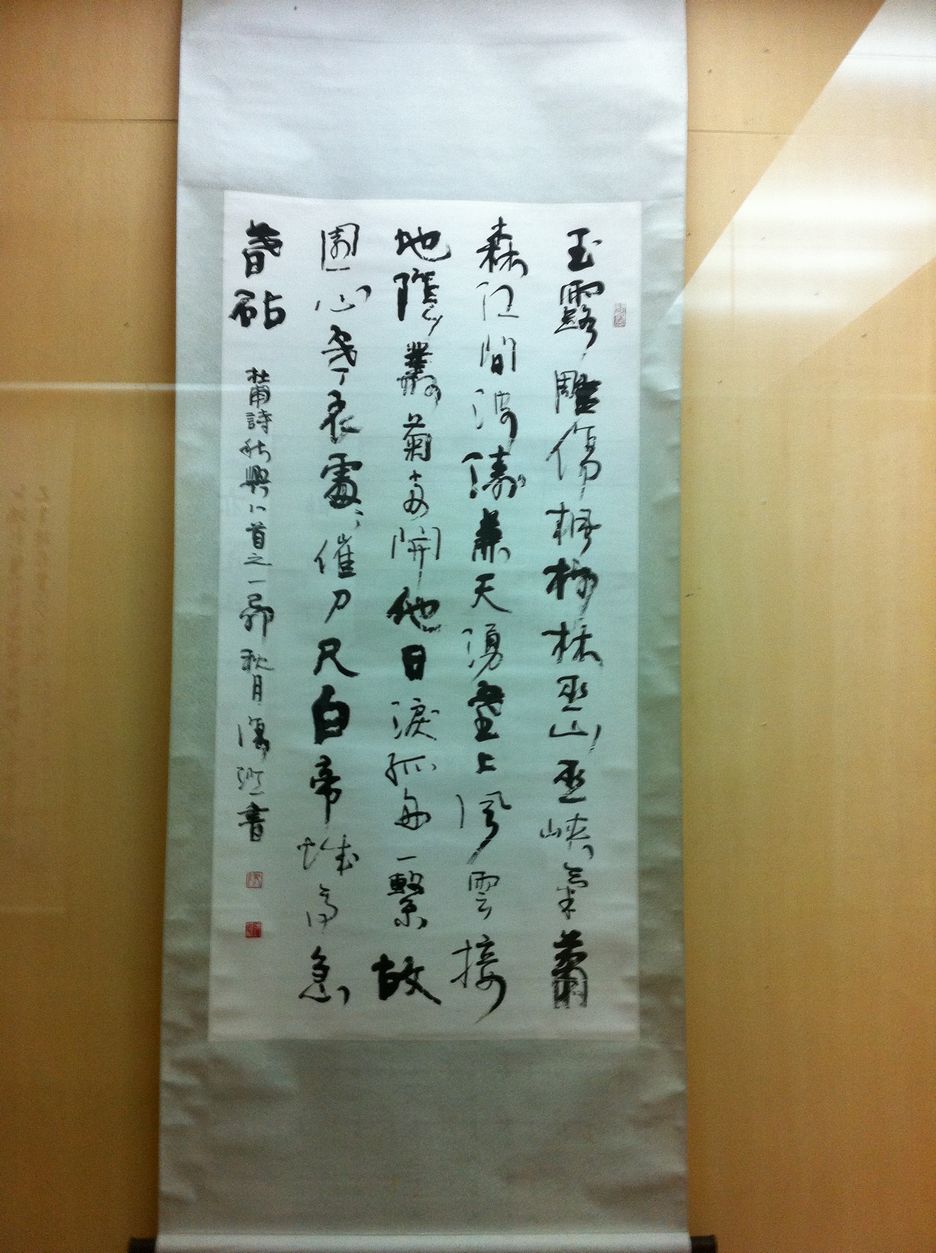 玉露雕傷楓樹林巫山巫峽氣蕭
森江間波濤兼天湧塞上風雲接
地陰叢菊兩開他日淚孤舟一繫故
園心寒衣處〻催刀尺白帝城高急
暮砧 杜甫詩秋興八首之一 秋月 書